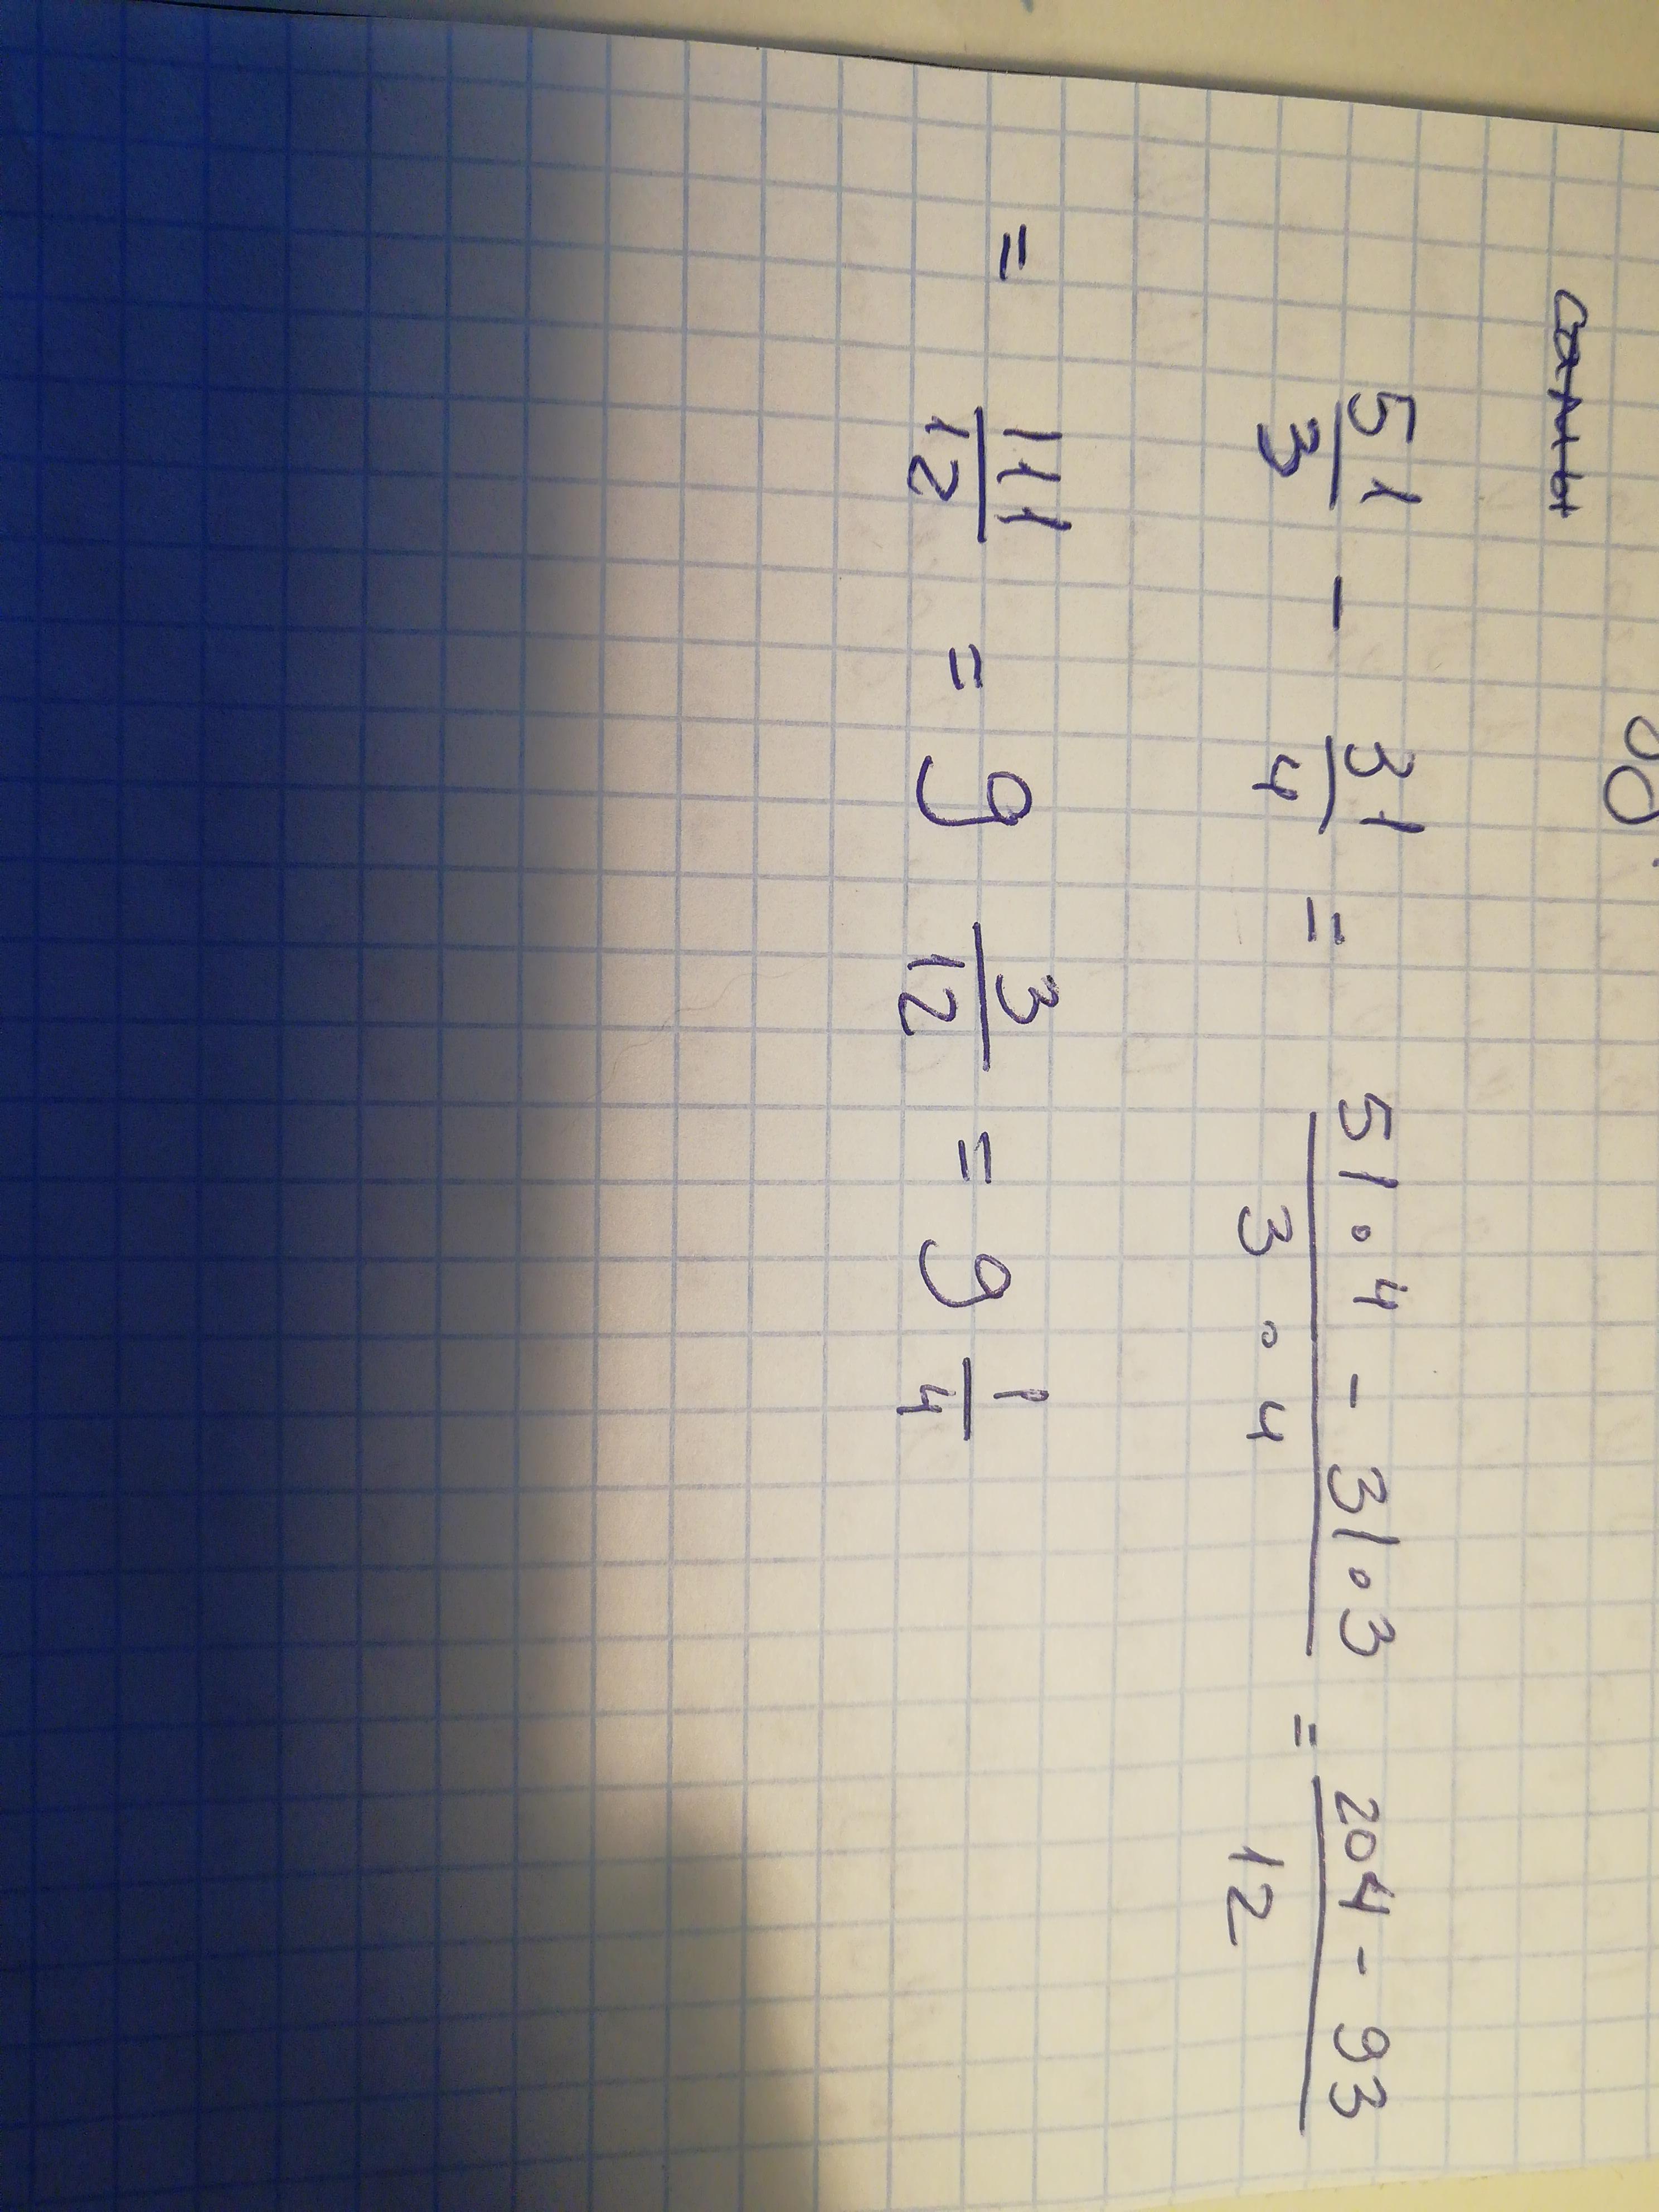 51/3 - 31/4 = (51 · 4 - 31 · 3)/(3 · 4) = (204 - 93)/12
= 111/12 = 9 3/12 = 9 1/4